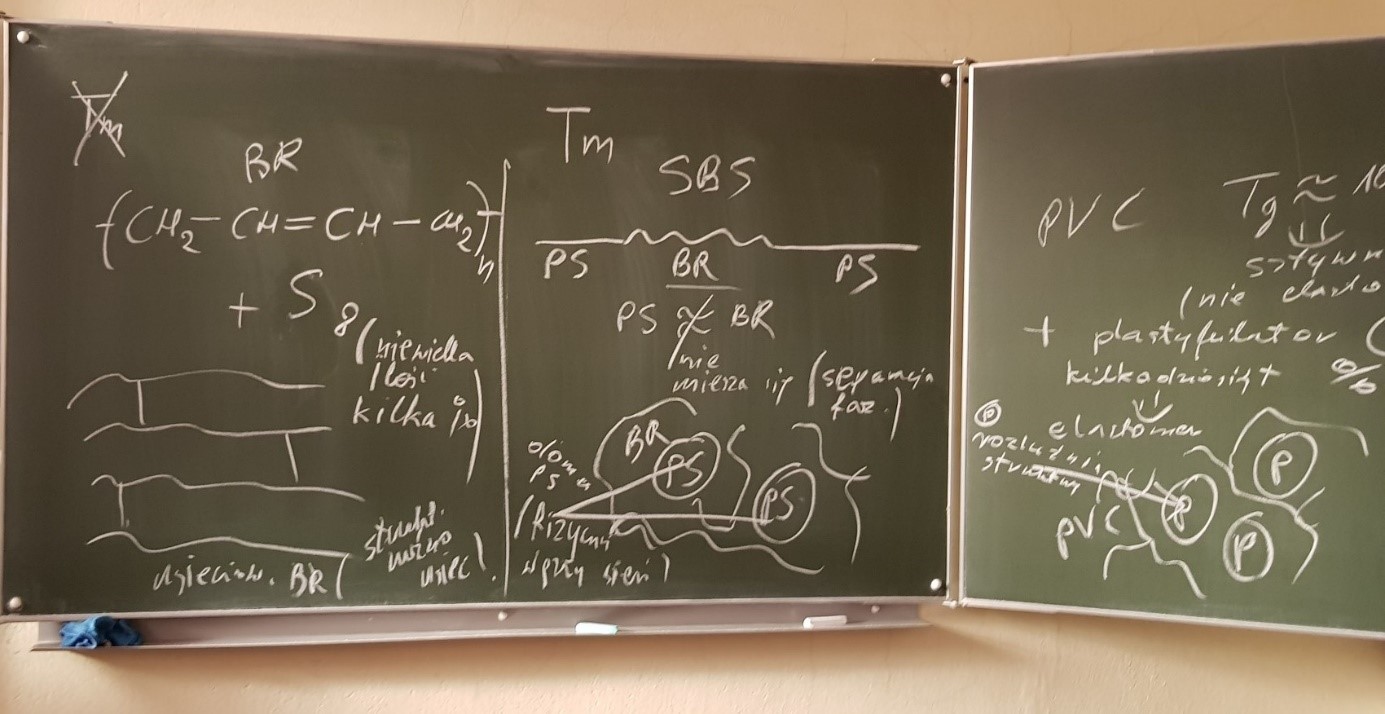 Tm
BR
(CH2 - CH = CH - CH2)n
+ S8 (niewielka
ilość
kilka %)
usieciow. BR (
Tm
SBS
PS BR PS
PS ≁ BR
nie
miesza się (separacja
faz.)
BR PS
PS
PS
(fizyczny
węzły sieci)
PVC Tg ≈
sztywn
(nie elasto
+ plastyfikator (
kilkadziesiąt %
elastomer
P
rozluźnia
PVC P P P